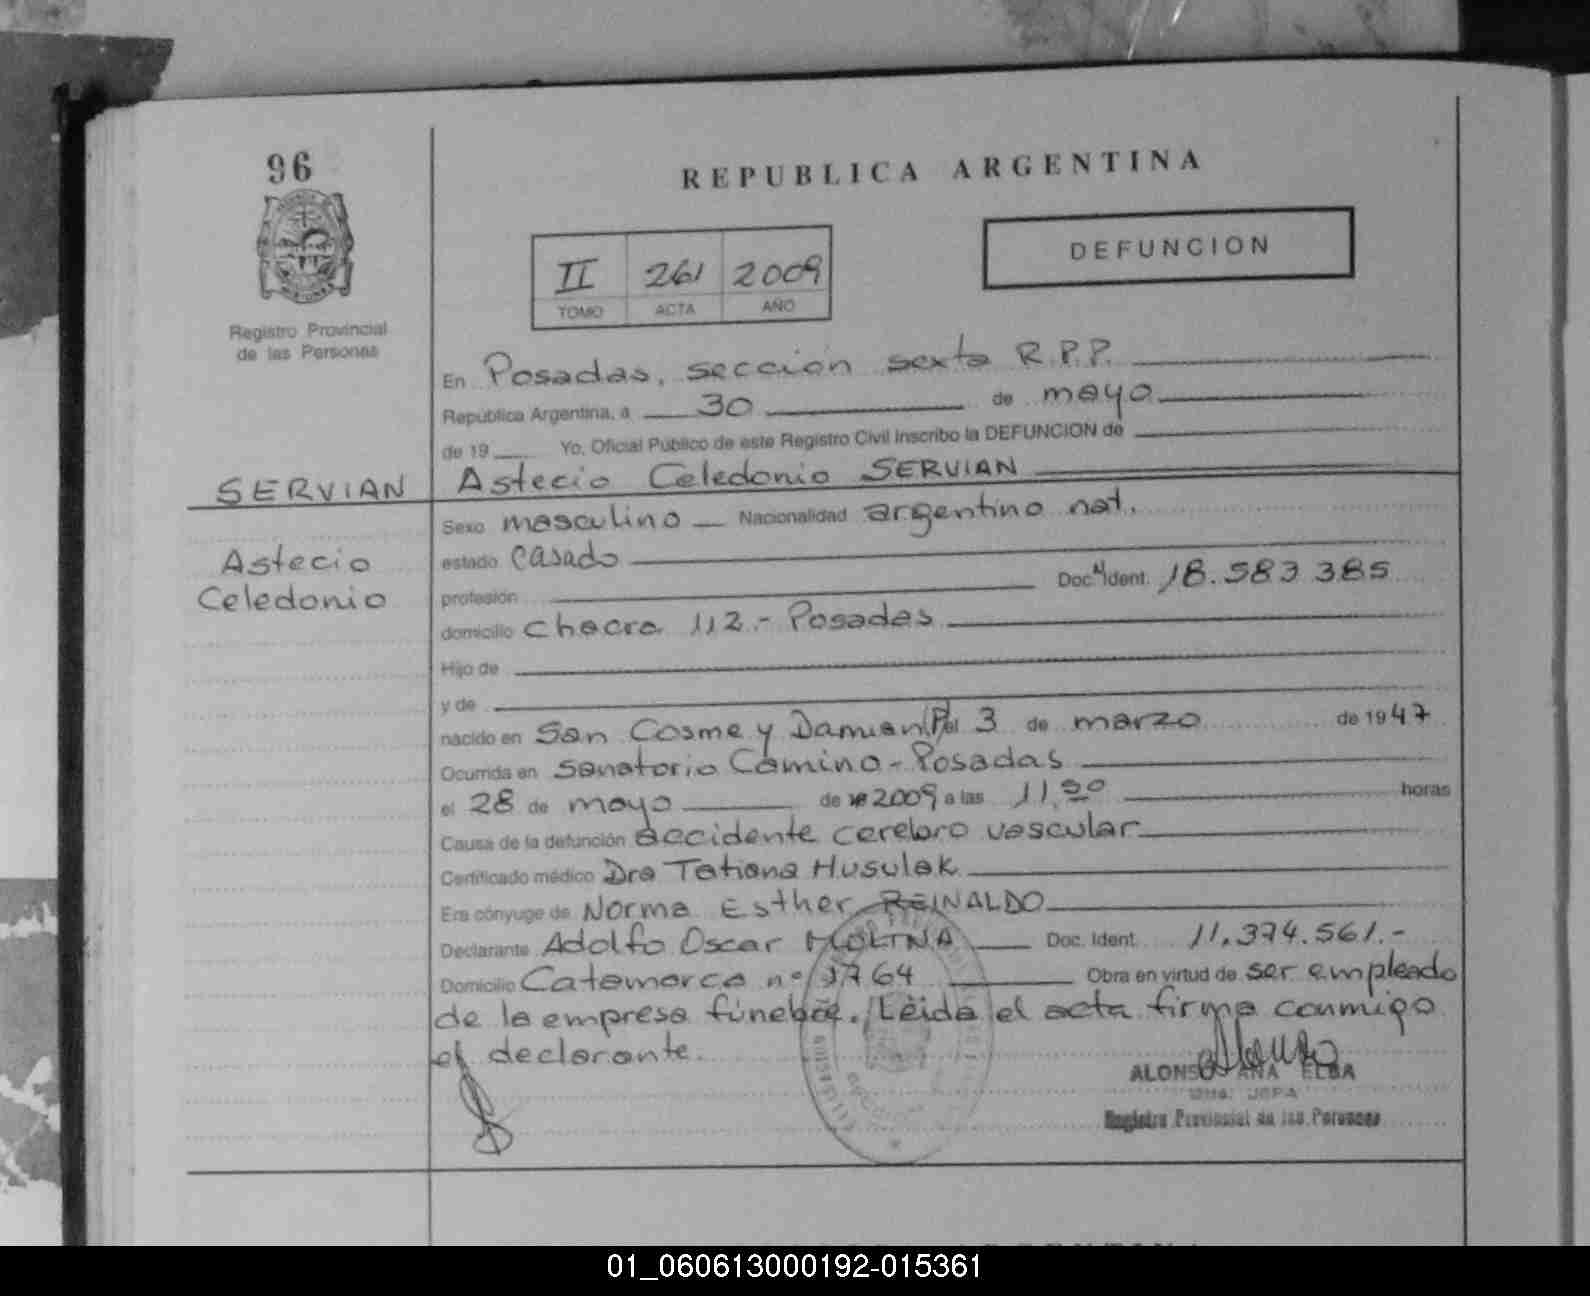 96
REPUBLICA ARGENTINA
DEFUNCION
II 261 2009
TOMO ACTA AÑO
Registro Provincial
de las Personas
En Posadas, sección sexta R.P.P.
República Argentina, a 30 de mayo
de 19 Yo, Oficial Público de este Registro Civil Inscribo la DEFUNCION de
SERVIAN
Astecio Celedonio SERVIAN
Astecio
Celedonio
Sexo masculino Nacionalidad argentino nat.
estado casado
profesión Doc. Ident. 18.583.385
domicilio chacra 112.- Posadas
Hijo de
y de
nacido en San Cosme y Damian (P) el 3 de marzo de 1947
Ocurrida en Sanatorio Camino - Posadas
el 28 de mayo de 2009 a las 11, horas
Causa de la defunción accidente cerebro vascular
Certificado médico Dra Tatiana Husulak
Era cónyuge de Norma Esther REINALDO
Declarante Adolfo Oscar MOLINA Doc. Ident. 11.374.561.-
Domicilio Catamarca nº 1764 Obra en virtud de ser empleado
de la empresa fúnebre. Leida el acta firma conmigo
el declarante.
ALONSO ANA ELBA
Registro Provincial de las Personas
01_060613000192-015361